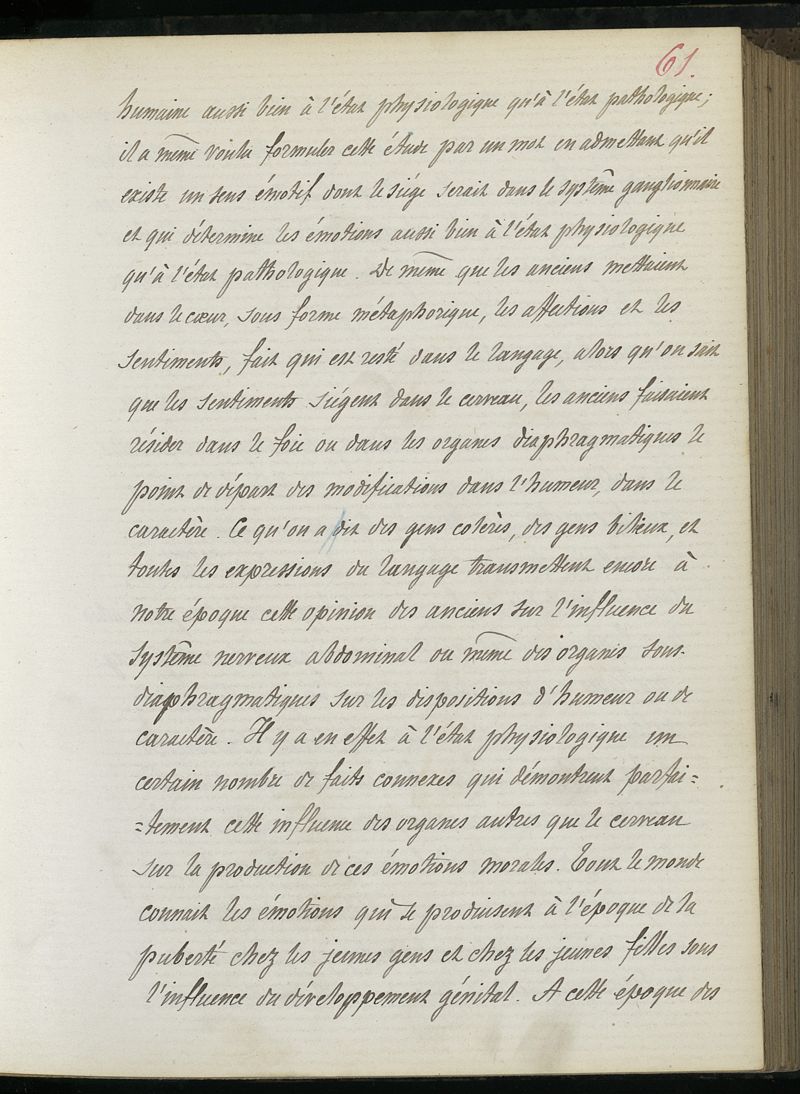 61.
humaine aussi bien à l'état physiologique qu'à l'état pathologique;
il a même voulu formuler cette étude par un mot en admettant qu'il
existe un sens émotif dont le siége serait dans le système ganglionnaire
et qui détermine les émotions aussi bien à l'état physiologique
qu'à l'état pathologique. De même que les anciens mettaient
dans le cœur, sous forme métaphorique, les affections et les
sentiments, fait qui est resté dans le langage, alors qu'on sait
que les sentiments siégent dans le cerveau, les anciens faisaient
résider dans le foie ou dans les organes diaphragmatiques le
point de départ des modifications dans l'humeur, dans le
caractère. Ce qu'on a dit des gens colères, des gens bilieux, et
toutes les expressions du langage transmettent encore à
notre époque cette opinion des anciens sur l'influence du
système nerveux abdominal ou même des organes sous-
diaphragmatiques sur les dispositions d'humeur ou de
caractère. Il y a en effet à l'état physiologique un
certain nombre de faits connexes qui démontrent parfai=
=tement cette influence des organes autres que le cerveau
sur la production de ces émotions morales. Tout le monde
connait les émotions qui se produisent à l'époque de la
puberté chez les jeunes gens et chez les jeunes filles sous
l'influence du développement génital. A cette époque des